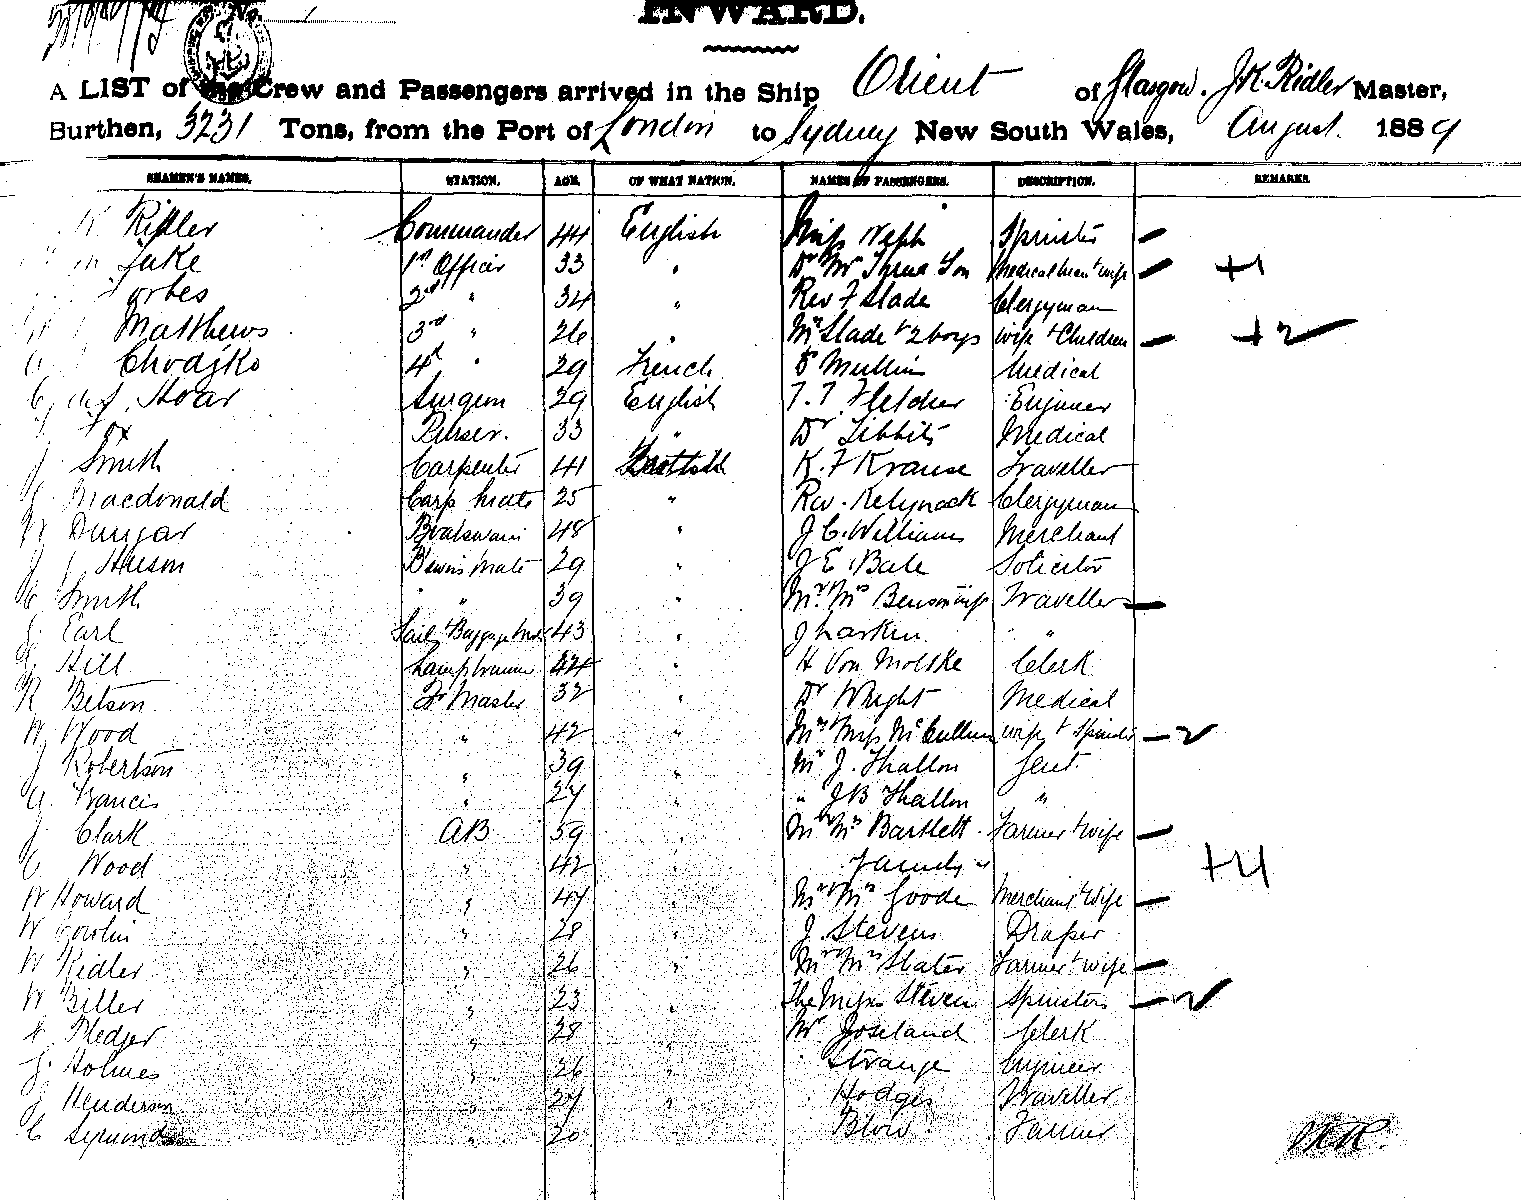 INWARD.
A LIST of the Crew and Passengers arrived in the Ship Orient of Glasgow. J.K. Ridler Master,
Burthen, 3231 Tons, from the Port of London to Sydney New South Wales, August. 1889
SEAMEN'S NAMES. STATION. AGE. OF WHAT NATION. NAMES OF PASSENGERS. DESCRIPTION. REMARKS.
K Ridler Commander 44 English Miss Spinster
1st Officer 33 " Dr Mrs Medical man & wife +1
Forbes 2nd " 34 " Rev F Slade Clergyman
Matthews 3rd " 26 " Mrs Slade & 2 boys wife & Children +2
Chodzko 4th " 29 French Mullin Medical
Hoar Surgeon 29 English T. T Fletcher Engineer
Fox Purser. 33 " Dr Tibbits Medical
J Smith Carpenter 41 Scottish K. F Krause Traveller
Macdonald Carp Mate 25 " Rev. Kelynack Clergyman
Dungar Boatswain 48 " J C. Williams Merchant
J Bswn's Mate 29 " J E. Bale Solicitor
C Smith " " 39 " Mr. Mrs Benson Traveller
J Earl Sail & Baggage 43 " J Larkin " "
Hill Lamptrimmer 44 " H Von Moltke Clerk
R Betson Qr Master 32 " Dr Wright Medical
W Wood " 42 " Mrs & Miss McCullum wife & Spinster 2
J Robertson " 39 " Mr J. Thallon Gent
Francis " 27 " " JB Thallon "
J Clark AB 59 " Mr & Mrs Bartlett Farmer & wife
C Wood " 42 " Family " +4
W Howard " 47 " Mr & Mrs Goode Merchant & wife
W " 28 " J. Stevens Draper
W Ridler " 26 " Mr & Mrs Slater Farmer & wife
W Biller " 23 " The Misses Steven Spinsters 2
Pledger " 28 " Mr Joseland Clerk
J. Holmes " 26 " Strange Engineer
J Henderson " 27 Hodges Traveller
C Symonds " 20 Blow Farmer